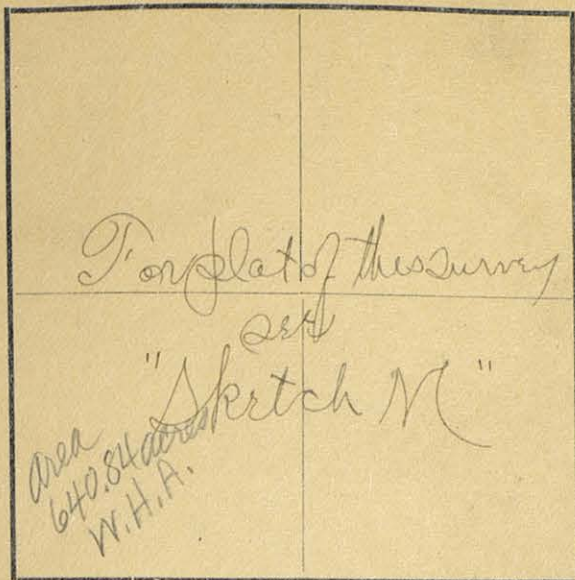 For plat of this survey
see
"Sketch M"
area
640.84 acres
W.H.A.